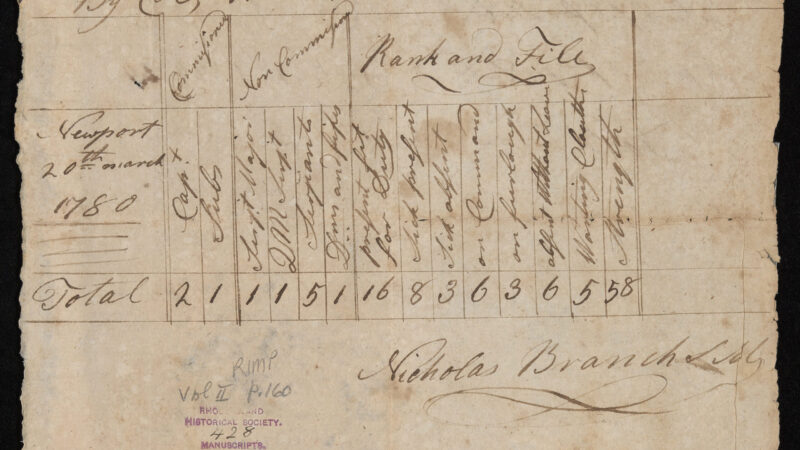 By
Commissioned Non Commission Rank and File
Newport
20th march
1780
Capt.
Subs
Sergt Major
Q M Sergt
Sergiants
Drms and fifes
presant fit
for Duty
Sick presant
Sick absent
on Command
on furlough
absent Without Leave
Wanting Cloaths
Strength
Total 2 1 1 1 5 1 16 8 3 6 3 6 5 58
Nicholas Branch
RIMP
Vol II p.160
RHODE ISLAND
HISTORICAL SOCIETY.
428
MANUSCRIPTS.